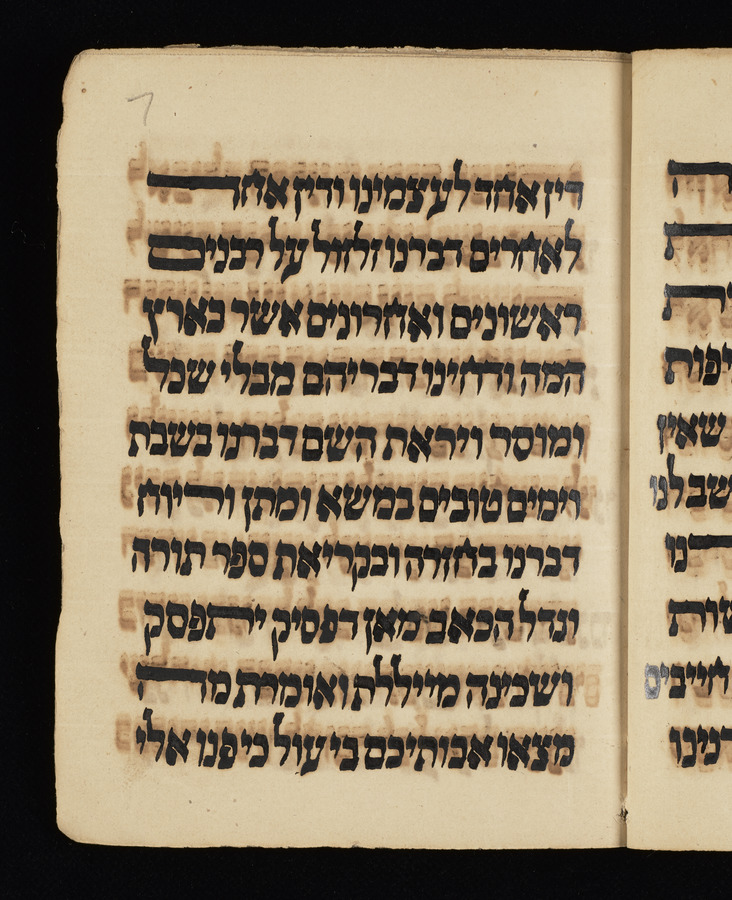 דין אחד לעצמינו ודין אחר
לאחרים דברנו זלזול על רבנים
ראשונים ואחרונים אשר בארץ
המה ודחינו דבריהם מבלי שכל
ומוסר ויראת השם דברנו בשבת
וימים טובים במשא ומתן וריוח
דברנו בחזרה ובקריאת ספר תורה
וגדל הכאב מאן דפסיק יתפסק
ושכינה מייללת ואומרת מה
מצאו אבותיכם בי עול כי פנו אלי
שאין
שבלנו